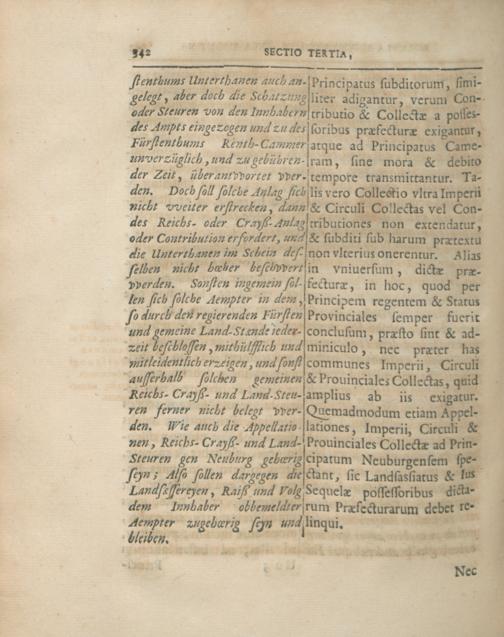 342 SECTIO TERTIA,
stenthums Unterthanen auch an-
gelegt, aber doch die Schatzung
oder Steuren von den Innhabern
des Ampts eingezogen und zu des
Fürstenthums Renth-Cammer
unverzüglich, und zu gebühren-
der Zeit, überantvvortet vver-
den. Doch soll solche Anlag sich
nicht vveiter erstrecken, dann
des Reichs- oder Crayß-Anlag
oder Contribution erfordert, und
die Unterthanen im Schein des-
selben nicht hœher beschvvert
vverden. Sonsten ingemein sol-
len sich solche Aempter in dem,
so durch den regierenden Fürsten
und gemeine Land-Stænde ieder-
zeit beschlossen, mithülfflich und
mitleidentlich erzeigen, und sonst
ausserhalb solchen gemeinen
Reichs- Crayß- und Land-Steu-
ren ferner nicht belegt vver-
den. Wie auch die Appellatio-
nen, Reichs- Crayß- und Land-
Steuren gen Neuburg gehœrig
seyn; Also sollen dargegen die
Landsæssereyen, Raiß und Volg
dem Innhaber obbemeldter
Aempter zugehœrig seyn und
bleiben.
Principatus subditorum, simi-
liter adigantur, verum Con-
tributio & Collectæ a posses-
soribus præfecturæ exigantur,
atque ad Principatus Came-
ram, sine mora & debito
tempore transmittantur. Ta-
lis vero Collectio vltra Imperii
& Circuli Collectas vel Con-
tributiones non extendatur,
& subditi sub harum prætextu
non vlterius onerentur. Alias
in vniuersum, dictæ præ-
fecturæ, in hoc, quod per
Principem regentem & Status
Provinciales semper fuerit
conclusum, præsto sint & ad-
miniculo, nec præter has
communes Imperii, Circuli
& Prouinciales Collectas, quid
amplius ab iis exigatur.
Quemadmodum etiam Appel-
lationes, Imperii, Circuli &
Prouinciales Collectæ ad Prin-
cipatum Neuburgensem spe-
ctant, sic Landsassiatus & Ius
Sequelæ possessoribus dicta-
rum Præfecturarum debet re-
linqui.
Nec